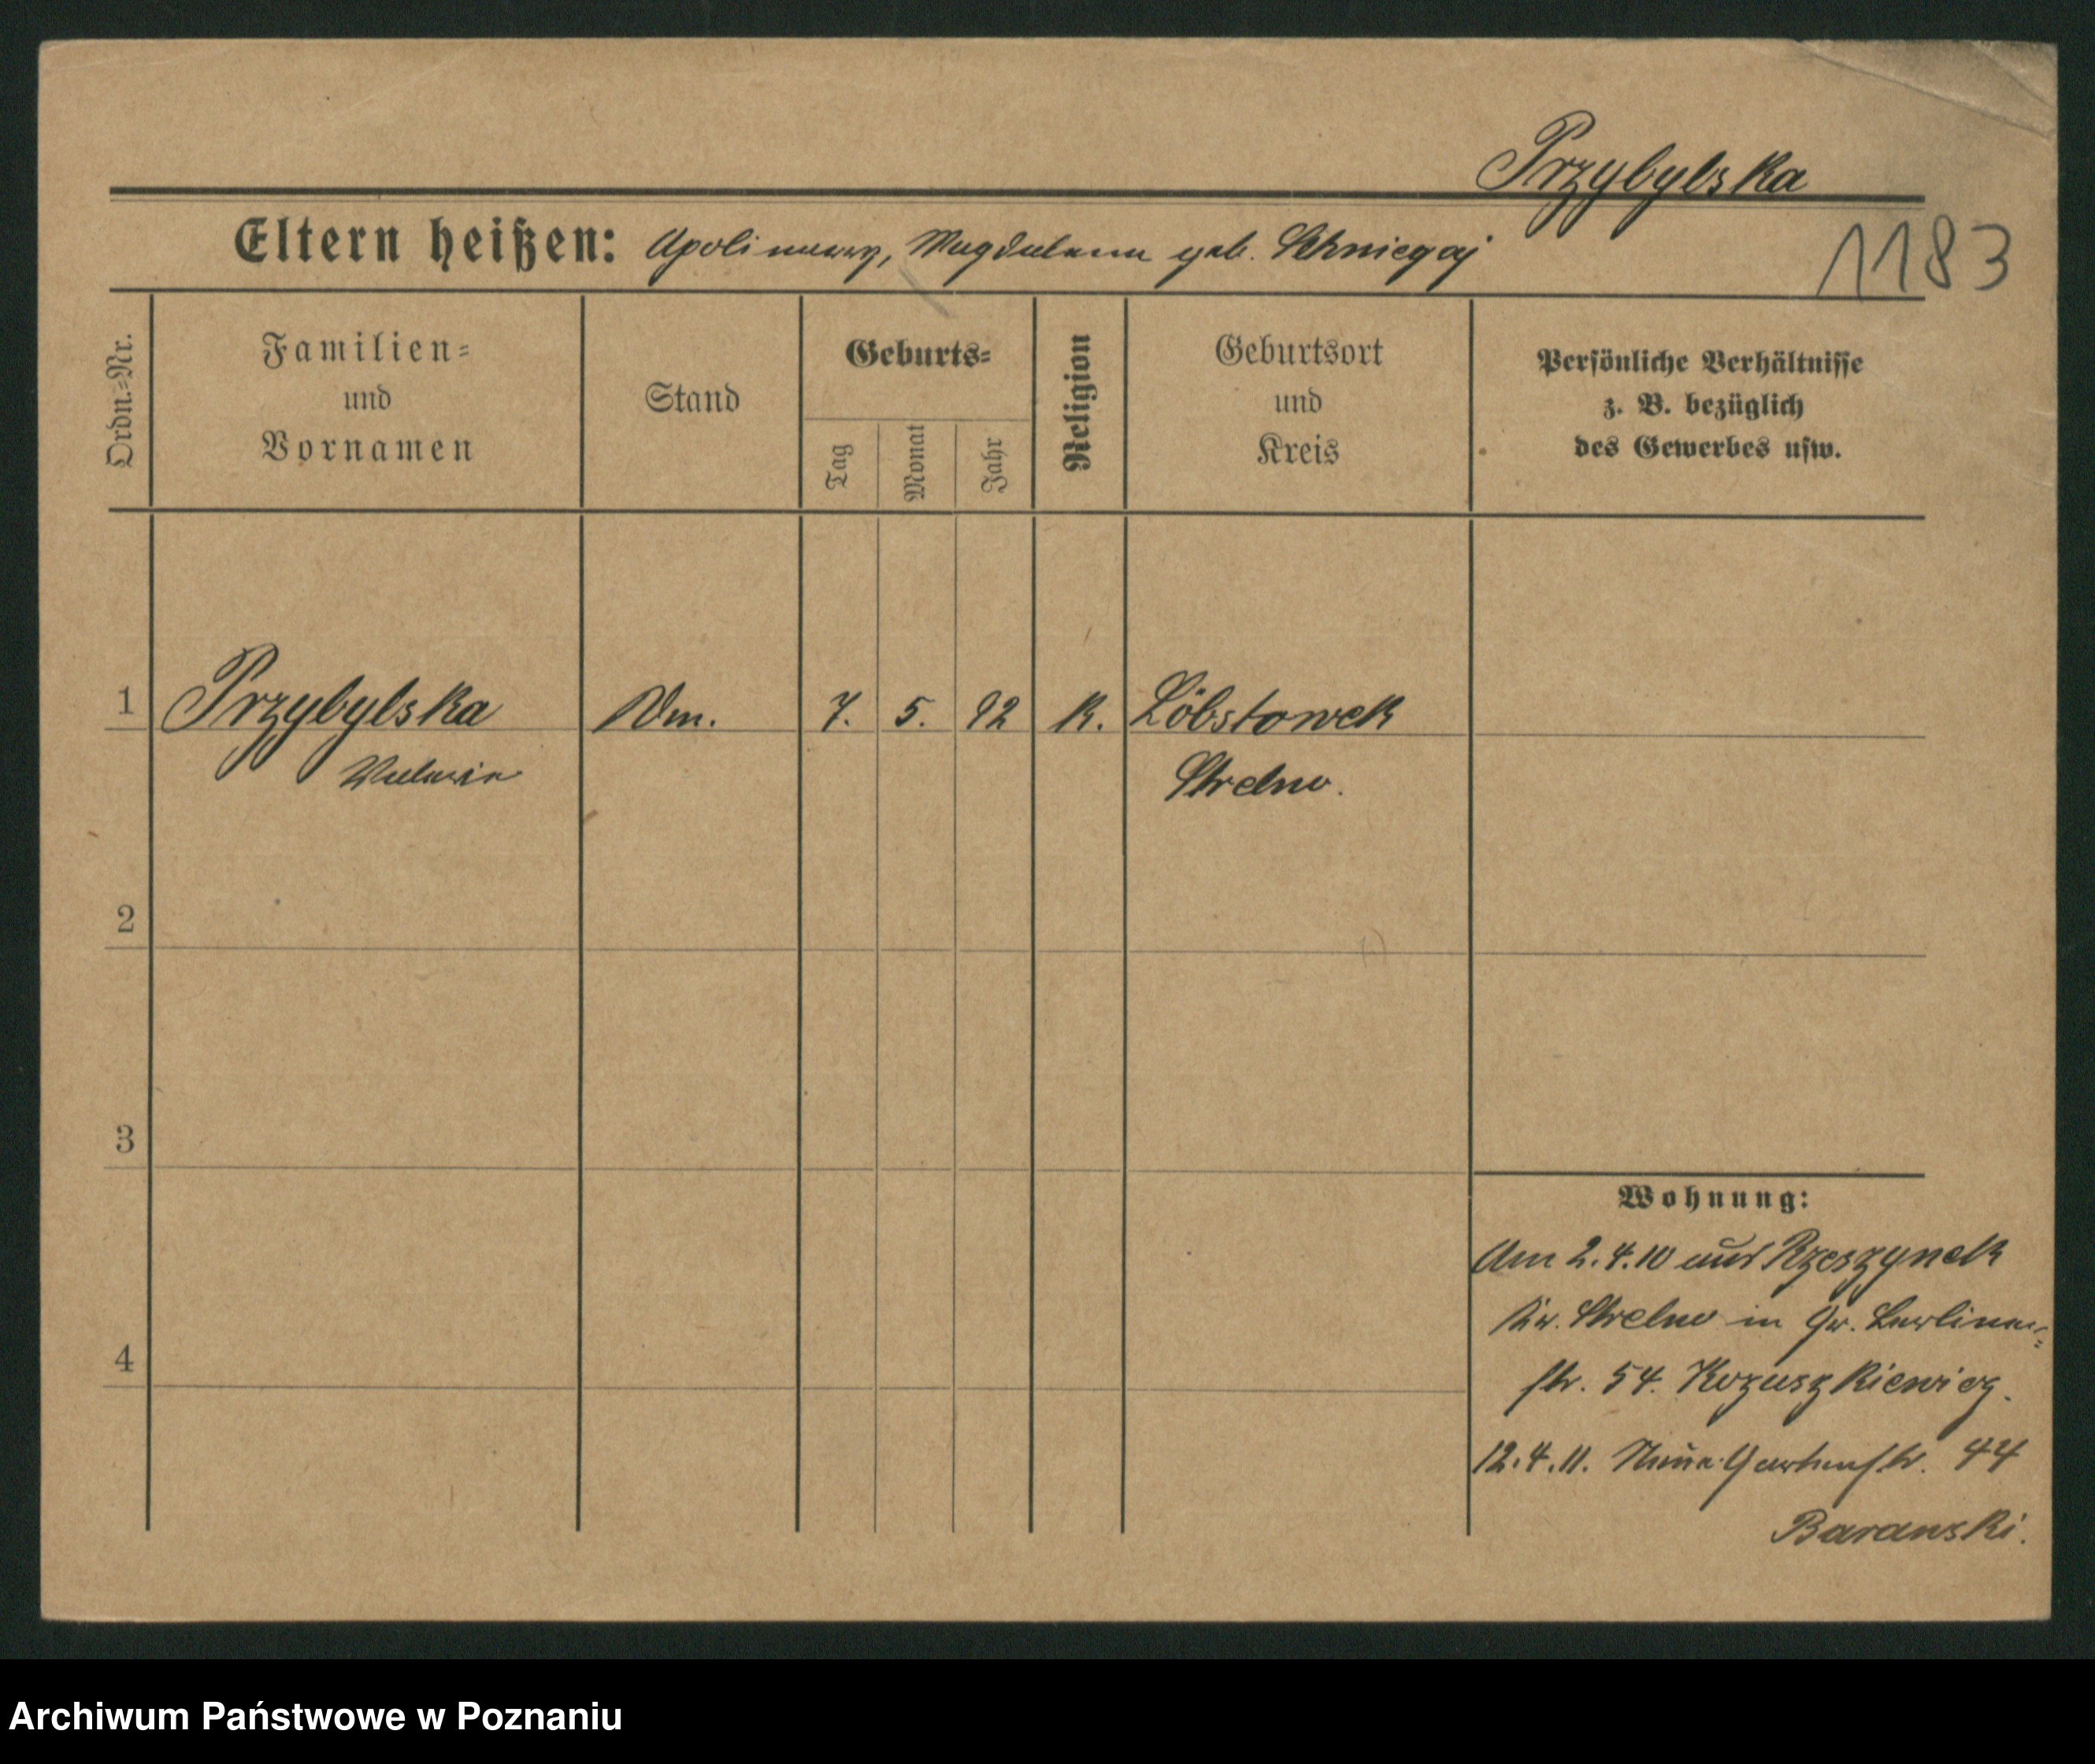 Przybylska
Eltern heißen: Apolinary, Magdalena geb. Schniegaj
1183
Ordn.=Nr.
Familien=
und
Vornamen
Stand
Geburts=
Tag
Monat
Jahr
Religion
Geburtsort
und
Kreis
Persönliche Verhältnisse
z. B. bezüglich
des Gewerbes usw.
1 Przybylska 7. 5. 92 k. Löbstowek
Strelno.
2
3
4
Wohnung:
Am 2.4.10 aus Rzeszynek
Kr. Strelno in Gr. Berliner=
str. 54. Kozuszkiewicz.
12.4.11. Neue Gartenstr. 44
Baranski.
Archiwum Państwowe w Poznaniu